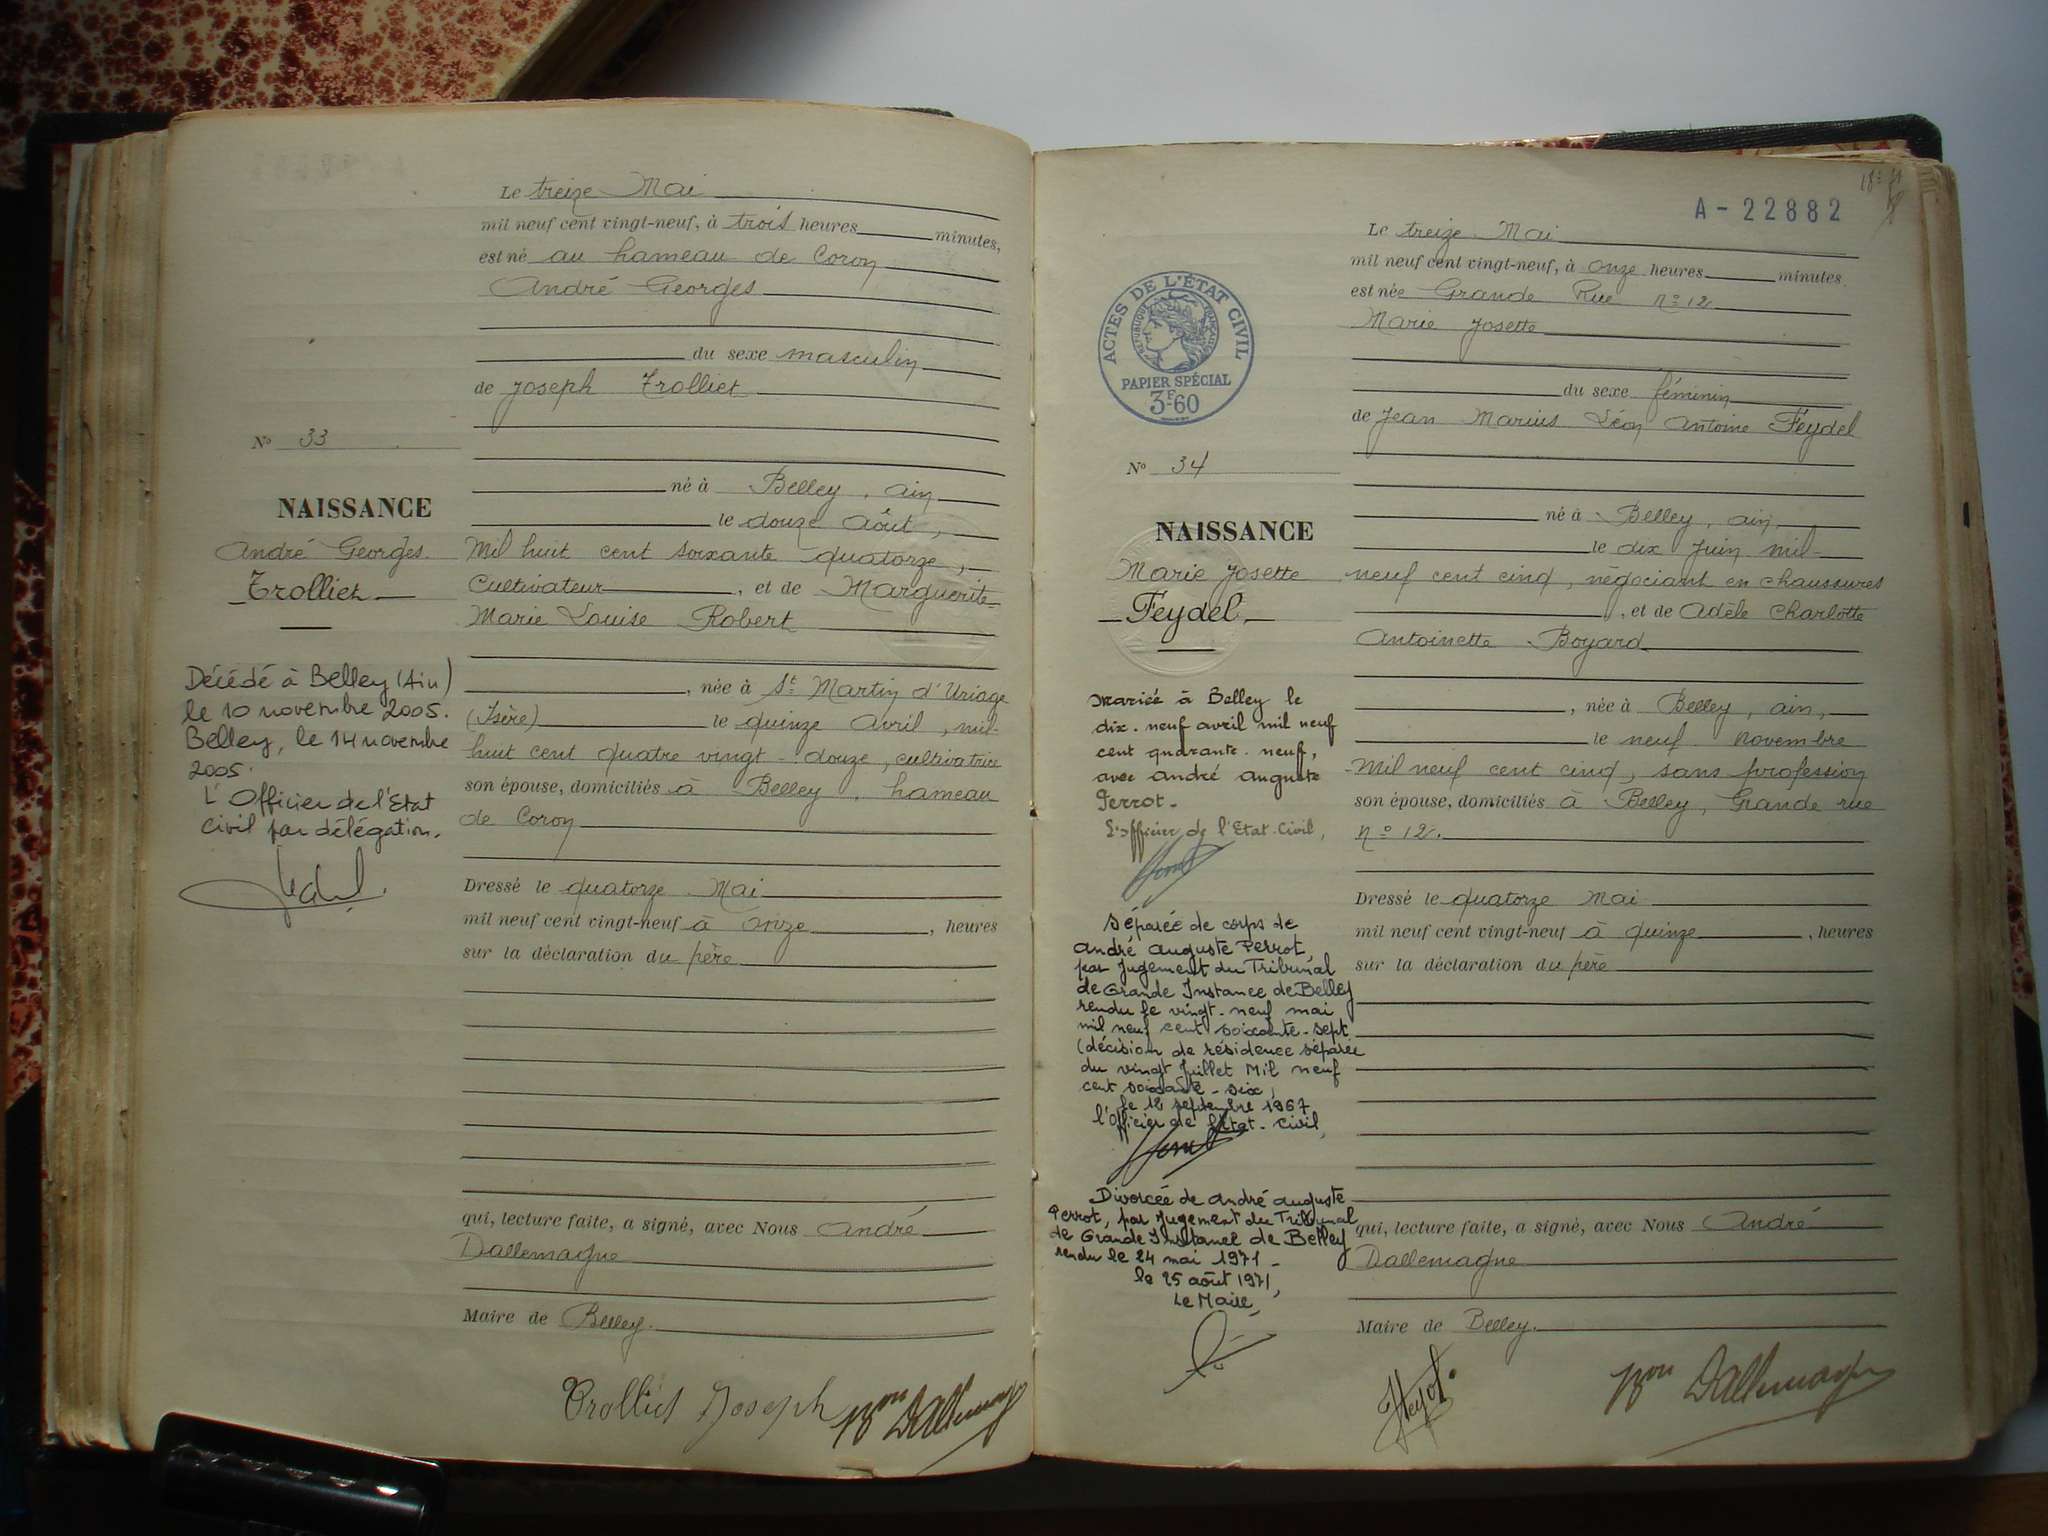 Le treize Mai
mil neuf cent vingt-neuf, à trois heures minutes,
est né au hameau de Coron
André Georges
du sexe masculin
de Joseph Trolliet
N° 33
né à Belley, ain
le douze Août,
NAISSANCE
André Georges
Trolliet
Mil huit cent soixante quatorze,
Cultivateur, et de Marguerite
Marie Louise Robert
Décédé à Belley (Ain)
le 10 novembre 2005.
Belley, le 14 novembre
2005.
L'Officier de l'Etat
Civil par délégation.
née à St Martin d'Uriage
(Isère) le quinze avril, mil-
huit cent quatre vingt-douze, cultivatrice
son épouse, domiciliés à Belley, hameau
de Coron
Dressé le quatorze Mai
mil neuf cent vingt-neuf à onze, heures
sur la déclaration du père
qui, lecture faite, a signé, avec Nous André
Dallemagne
Maire de Belley.
Trolliet Joseph Bon Dallemagne
A-22882
Le treize Mai
mil neuf cent vingt-neuf, à onze heures minutes.
est née Grande Rue n° 12
Marie Josette
ACTES DE L'ÉTAT CIVIL
RÉPUBLIQUE FRANÇAISE
PAPIER SPÉCIAL
3F60
du sexe féminin
de Jean Marius Léon Antoine Feydel
N° 34
né à Belley, ain,
le dix Juin mil-
NAISSANCE
Marie Josette
Feydel
neuf cent cinq, négociant en chaussures
, et de Adèle Charlotte
Antoinette Boyard
née à Belley, ain,
le neuf novembre
Mil neuf cent cinq, sans profession
son épouse, domiciliés à Belley, Grande rue
n° 12.
Mariée à Belley le
dix-neuf avril mil neuf
cent quarante-neuf,
avec André Auguste
Perrot-
L'officier de l'Etat-Civil,
Dressé le quatorze Mai
mil neuf cent vingt-neuf à quinze, heures
sur la déclaration du père
Séparée de corps de
André Auguste Perrot,
par Jugement du Tribunal
de Grande Instance de Belley
rendu le vingt-neuf mai
mil neuf cent soixante-sept
(décision de résidence séparée
du vingt Juillet Mil neuf
cent soixante-six,
le 12 septembre 1967
l'Officier de l'Etat-Civil,
Divorcée de André Auguste
Perrot, par Jugement du Tribunal
de Grande Instance de Belley
rendu le 24 mai 1971-
le 25 août 1971,
Le Maire,
qui, lecture faite, a signé, avec Nous André
Dallemagne
Maire de Belley.
Bon Dallemagne